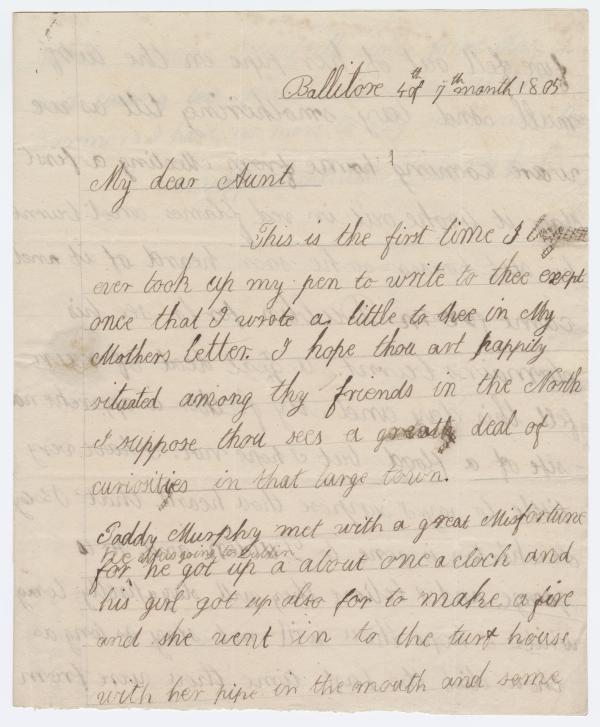 Ballitore 4th of 7th month 1805
My dear Aunt
This is the first time I
ever took up my pen to write to thee except
once that I wrote a little to thee in My
Mothers letter. I hope thou art happily
situated among thy friends in the North
I suppose thou sees a great deal of
curiosities in that large town.
Paddy Murphy met with a great Misfortune
he was going to Dublin
for he got up a about one a clock and
his girl got up also for to make a fire
and she went in to the turf house
with her pipe in the mouth and some